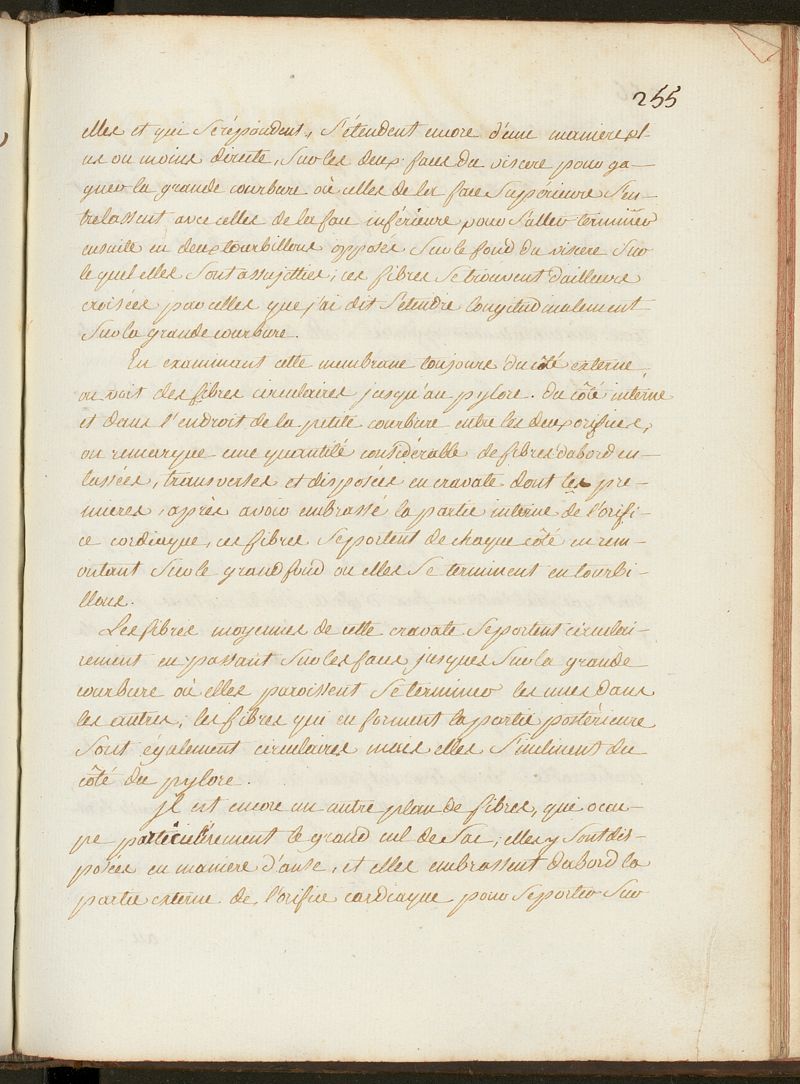 255
elles et qui se répondent, s'étendent encore d'une maniere pl-
us ou moins directe, sur les deux faces du viscere pour ga-
gner la grande courbure où celles de la face supérieure s'en-
trelassent avec celles de la face inférieure pour s'aller terminer
ensuite en deux tourbillons opposés sur le fond du viscere sur
le quel elles sont assujetties; ces fibres se trouvent d'ailleurs
croisées par celles que j'ai dit s'etendre longitudinalement
sur la grande courbure.
En examinant cette membrane toujours du côté externe,
on voit des fibres circulaires jusqu'au pylore. du côté interne
et dans l'endroit de la petite courbure entre les deux orifices,
on remarque une quantité considérable de fibres d'abord en-
tassées, transverses et disposées en cravate dont les pre-
mieres, après avoir embrassé la partie interne de l'orifi-
ce cordiaque, ces fibres se portent de chaque côté en rem-
ontant sur le grand fond ou elles se terminent en tourbi-
llons.
Les fibres moyennes de cette cravate se portent circulai-
rement en passant sur les faces jusques sur la grande
courbure où elles paroissent se terminer les unes dans
les autres; les fibres qui en forment la partie postérieure
sont également circulaires mais elles s'inclinent du
côté du pylore.
Jl est encore un autre plan de fibres, qui occu-
pe particulièrement le grand cul de sac; elles y sont dis-
posées en maniere d'anse, et elles embrassent dabord la
partie externe de l'orifice cardiaque pour se porter sur